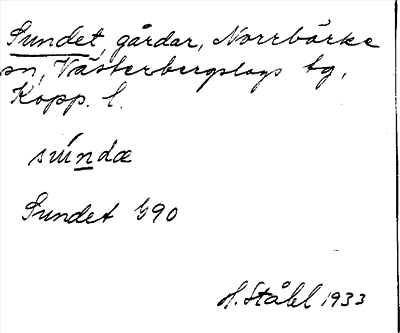 Sundet, gårdar, Norrbärke
sn, Västerbergslags tg,
Kopp. l.
súndæ
Sundet G90
H. Ståhl 1933